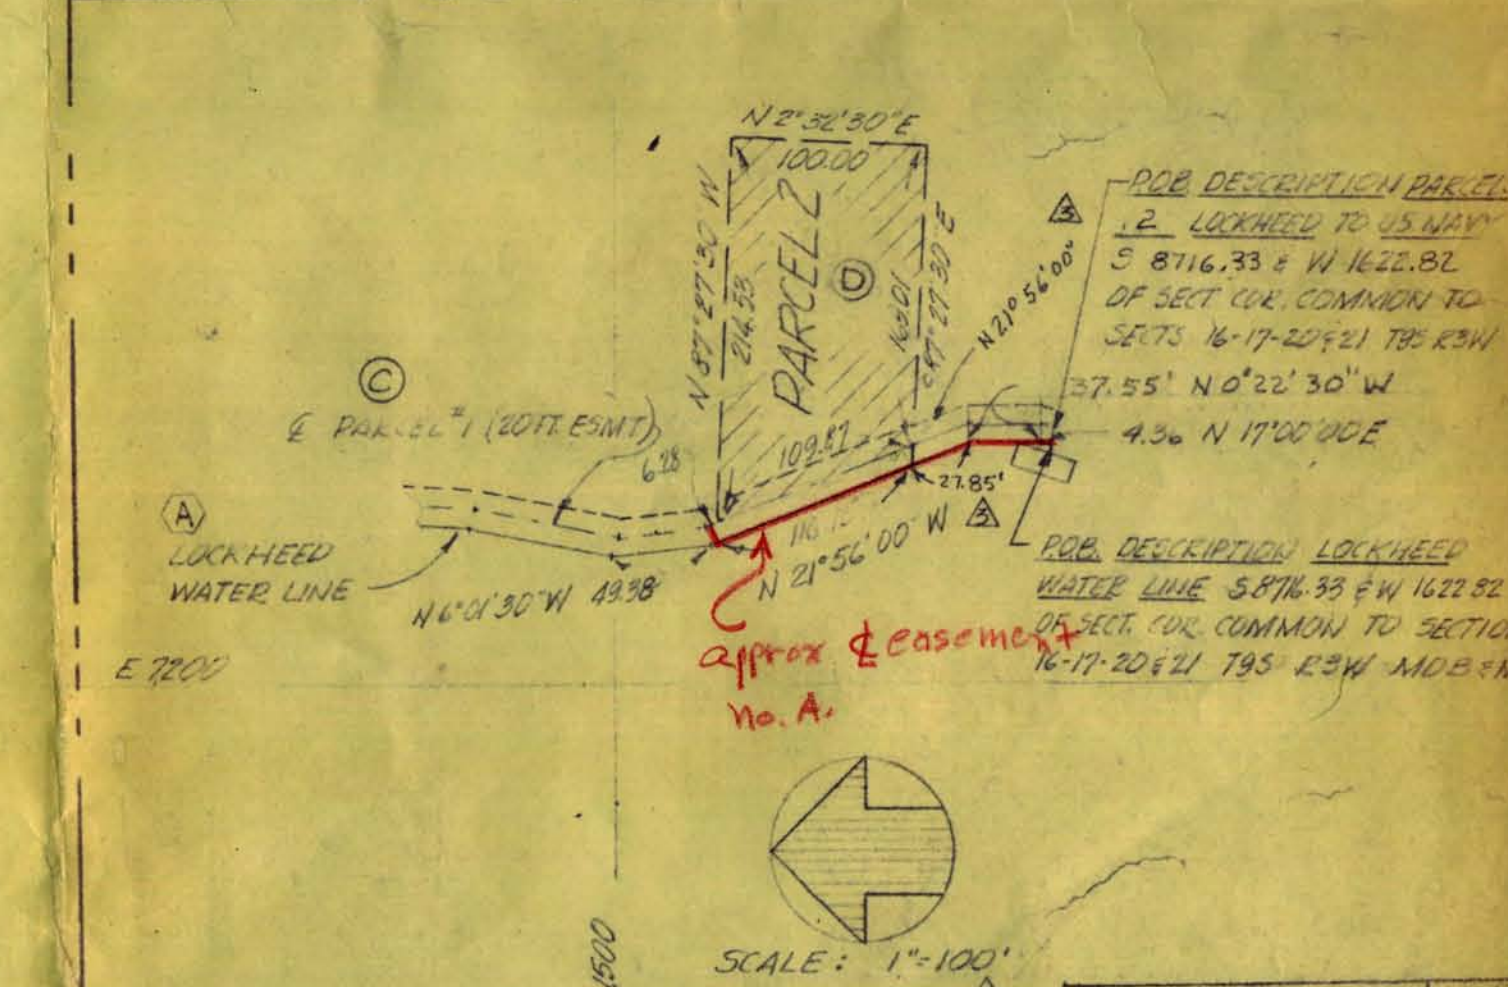 N 2°32'30"E
100.00
N 87°27'30 W
214.53
PARCEL 2
D
169.01
S 87°27'30 E
3
N 21°56'00"
P.O.B. DESCRIPTION PARCEL
.2 LOCKHEED TO US NAVY
S 8716.33 & W 1622.82
OF SECT COR. COMMON TO
SECTS 16-17-20 & 21 T9S R3W
37.55' N 0°22'30" W
4.36 N 17°00'00 E
C
℄ PARCEL #1 (20 FT. ESMT)
6.28
109.87
27.85'
3
A
LOCKHEED
WATER LINE
N 6°01'30"W 49.38
N 21°56'00" W
P.O.B. DESCRIPTION LOCKHEED
WATER LINE S.8716.33 & W 1622.82
OF SECT. COR. COMMON TO SECTIO
16-17-20 & 21 T9S R3W MDB & M
approx ℄ easement
no. A.
E 7200
500
SCALE: 1"=100'